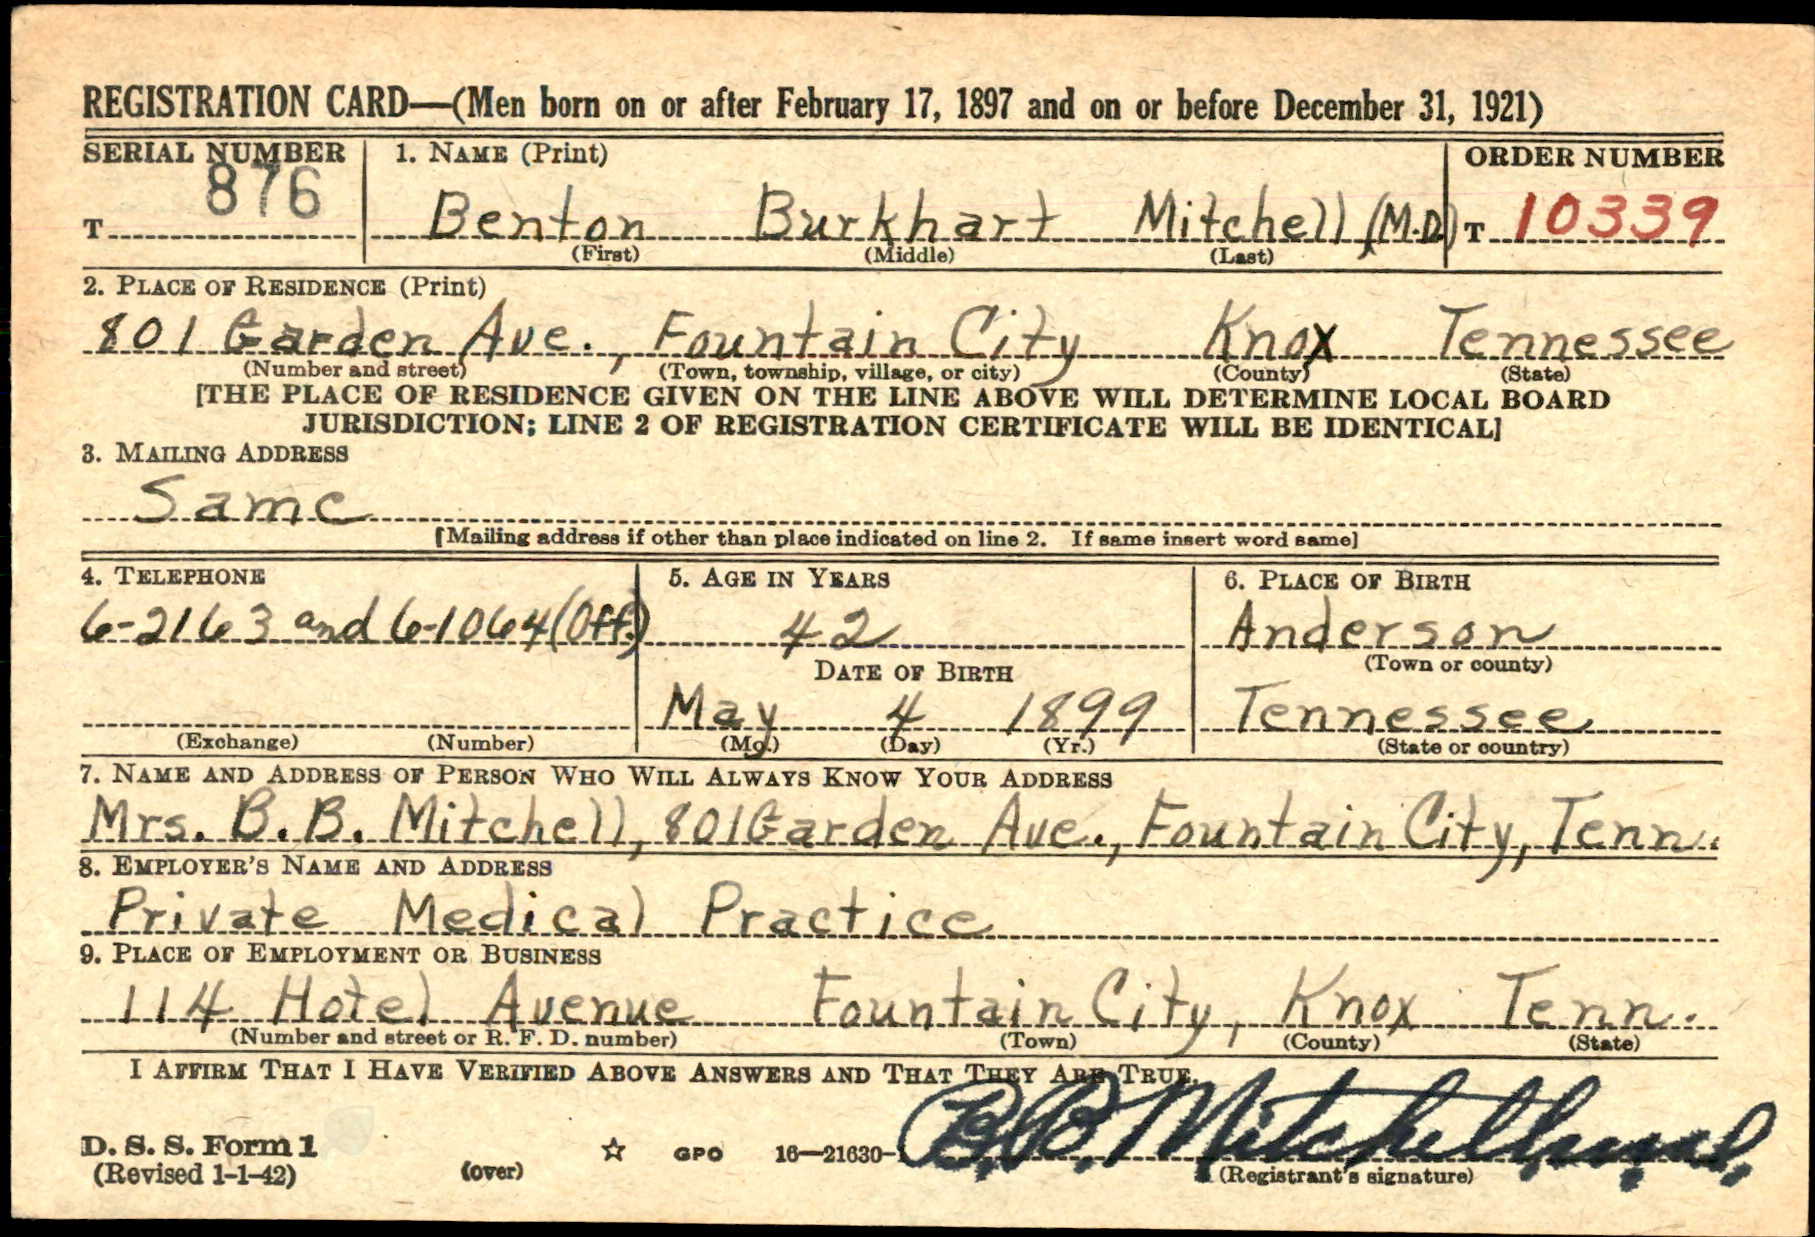 REGISTRATION CARD—(Men born on or after February 17, 1897 and on or before December 31, 1921)
SERIAL NUMBER 1. NAME (Print) ORDER NUMBER
T 876 Benton Burkhart Mitchell (M.D.) T 10339
(First) (Middle) (Last)
2. PLACE OF RESIDENCE (Print)
801 Garden Ave., Fountain City Knox Tennessee
(Number and street) (Town, township, village, or city) (County) (State)
[THE PLACE OF RESIDENCE GIVEN ON THE LINE ABOVE WILL DETERMINE LOCAL BOARD
JURISDICTION; LINE 2 OF REGISTRATION CERTIFICATE WILL BE IDENTICAL]
3. MAILING ADDRESS
Same
[Mailing address if other than place indicated on line 2. If same insert word same]
4. TELEPHONE 5. AGE IN YEARS 6. PLACE OF BIRTH
6-2163 and 6-1064 (Off.) 42 Anderson
(Town or county)
DATE OF BIRTH
May 4 1899 Tennessee
(Exchange) (Number) (Mo.) (Day) (Yr.) (State or country)
7. NAME AND ADDRESS OF PERSON WHO WILL ALWAYS KNOW YOUR ADDRESS
Mrs. B. B. Mitchell, 801 Garden Ave., Fountain City, Tenn.
8. EMPLOYER'S NAME AND ADDRESS
Private Medical Practice
9. PLACE OF EMPLOYMENT OR BUSINESS
114 Hotel Avenue Fountain City, Knox Tenn.
(Number and street or R. F. D. number) (Town) (County) (State)
I AFFIRM THAT I HAVE VERIFIED ABOVE ANSWERS AND THAT THEY ARE TRUE.
B. B. Mitchell M.D.
D. S. S. Form 1 GPO 16—21630-
(Revised 1-1-42) (over) (Registrant's signature)